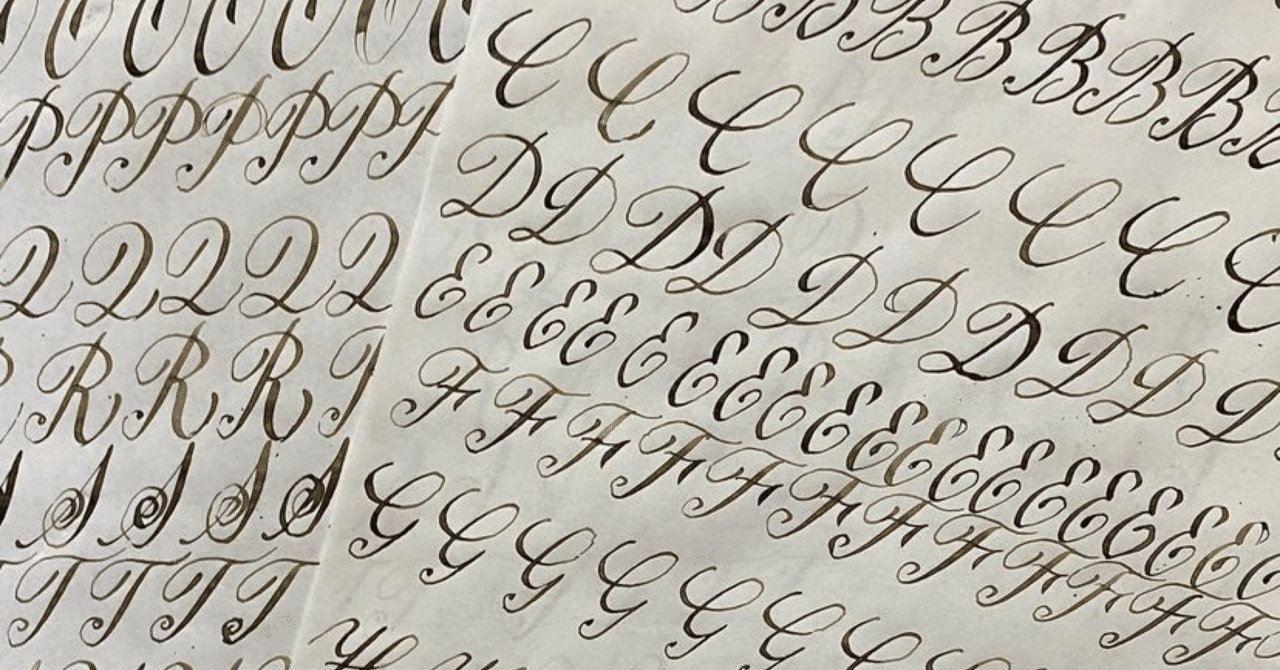 P P P P P P
Q Q Q Q Q
R R R
S S S S
T T T T
B B B B B B B
C C C C C C C C
D D D D D D D D D D
E E E E E E E E E E E E E E E E E E
F F F F F F F F F F F F
G G G G G G
H